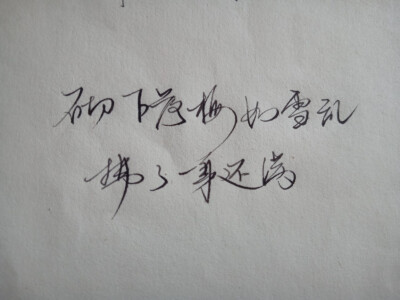 砌下落梅如雪乱
拂了一身还满